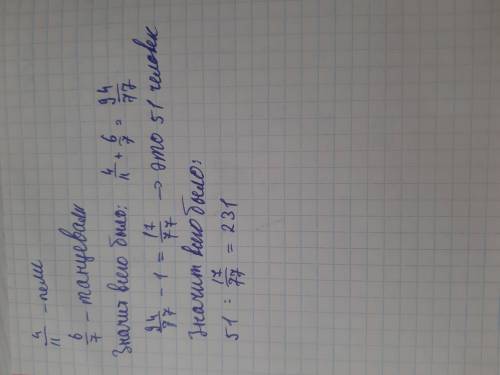 4/11 - пели
6/7 - танцевали
Значит всего было: 4/11 + 6/7 = 94/77
94/77 - 1 = 17/77 → это 51 человек
Значит всего было:
51 : 17/77 = 231